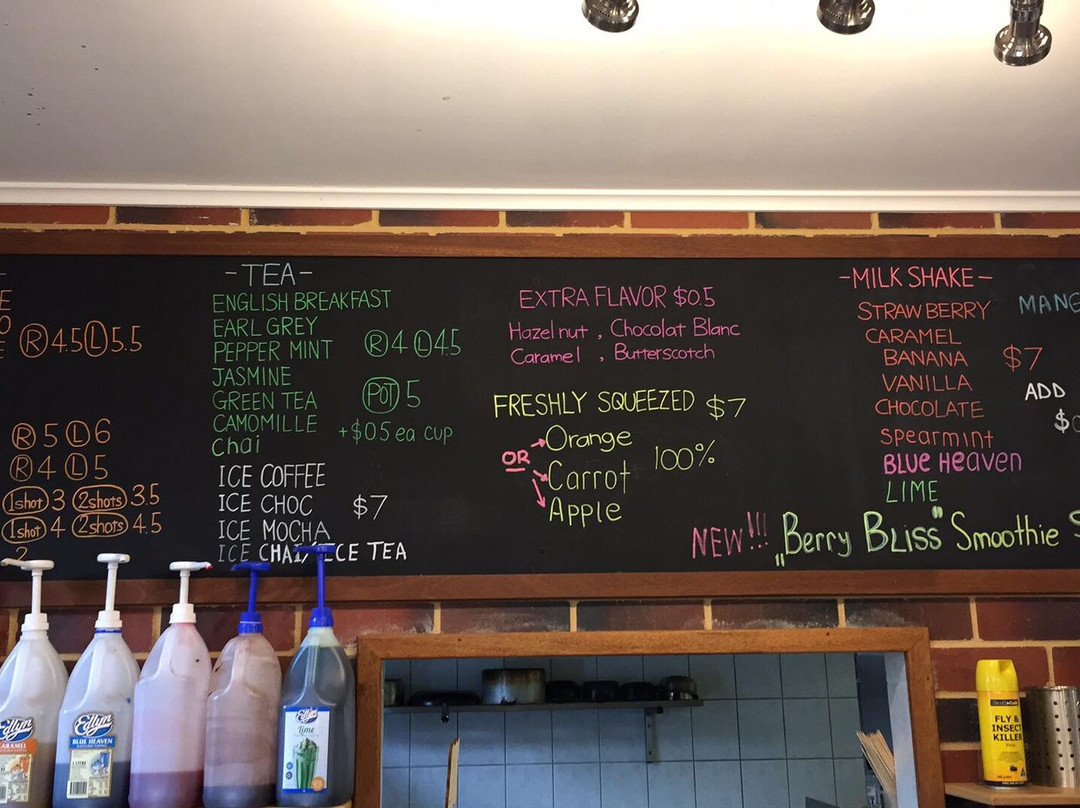 E
O
E Ⓡ 4.5 Ⓛ 5.5
Ⓡ 5 Ⓛ 6
Ⓡ 4 Ⓛ 5
1shot 3 2shots 3.5
1shot 4 2shots 4.5
2
-TEA-
ENGLISH BREAKFAST
EARL GREY
PEPPER MINT Ⓡ 4 Ⓛ 4.5
JASMINE
GREEN TEA POT 5
CAMOMILLE +$0.5 ea cup
Chai
ICE COFFEE
ICE CHOC $7
ICE MOCHA
ICE CHAI/ICE TEA
EXTRA FLAVOR $0.5
Hazelnut , Chocolat Blanc
Caramel , Butterscotch
FRESHLY SQUEEZED $7
Orange
OR Carrot 100%
Apple
-MILK SHAKE-
STRAWBERRY
CARAMEL
BANANA $7
VANILLA
CHOCOLATE
Spearmint
BLUE HEAVEN
LIME
MANG
ADD
$0
NEW!!! „Berry BLISS" Smoothie $
Edlyn
CARAMEL
Edlyn
BLUE HEAVEN
Edlyn
lime
FLY &
INSECT
KILLER